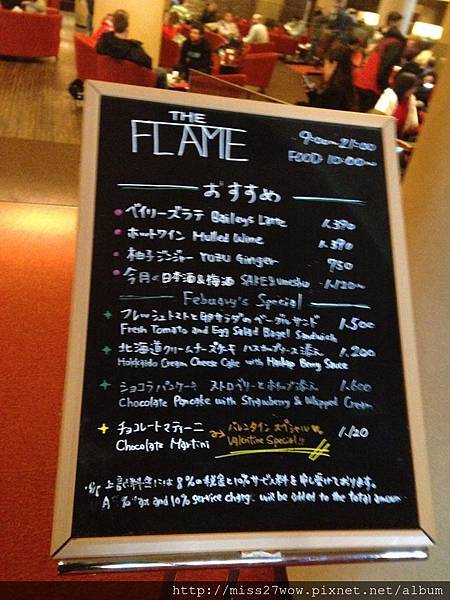 THE
FLAME
9:00~21:00
FOOD 10:00~
おすすめ
ベイリーズラテ Baileys Latte 1,390
ホットワイン Mulled Wine 1,390
柚子ジンジャー YUZU Ginger 950
今月の日本酒&梅酒 SAKE&umeshu
Febuary's Special
フレッシュトマトと卵サラダのベーグルサンド 1,500
Fresh Tomato and Egg Salad Bagel Sandwich
北海道クリームチーズケーキ ハスカップソース添え 1,200
Hokkaido Cream Cheese Cake with Haskap Berry Sauce
ショコラパンケーキ ストロベリーとホイップ添え 1,600
Chocolate Pancake with Strawberry & Whipped Cream
チョコレートマティーニ バレンタインスペシャル
Chocolate Martini Valentine Special!!
上記料金には8%の税金と10%サービス料を申し受けております。
A 8% tax and 10% service charge will be added to the total amount
http://miss27wow.pixnet.net/album